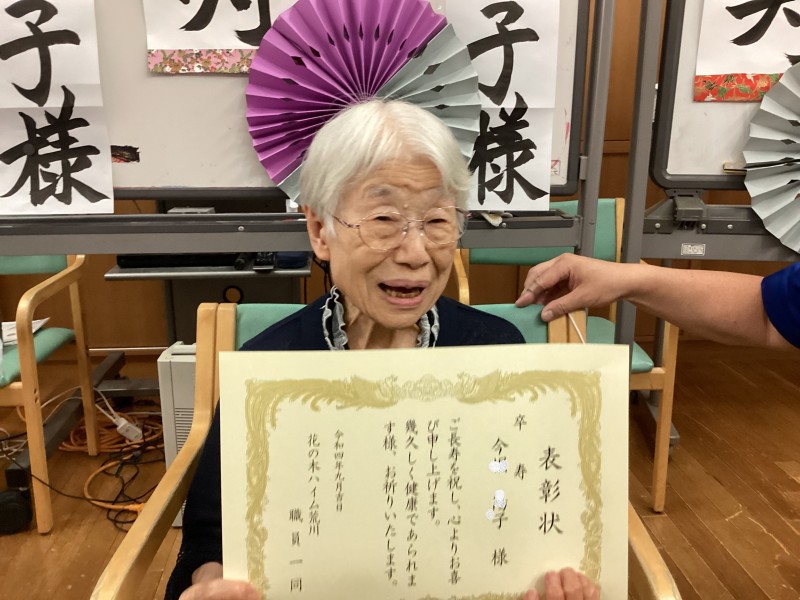 子様
子様
表彰状
卒寿
今 子 様
ご長寿を祝し、心よりお喜
び申し上げます。
幾久しく健康であられま
す様、お祈りいたします。
令和四年九月吉日
花の木ハイム荒川
職員一同